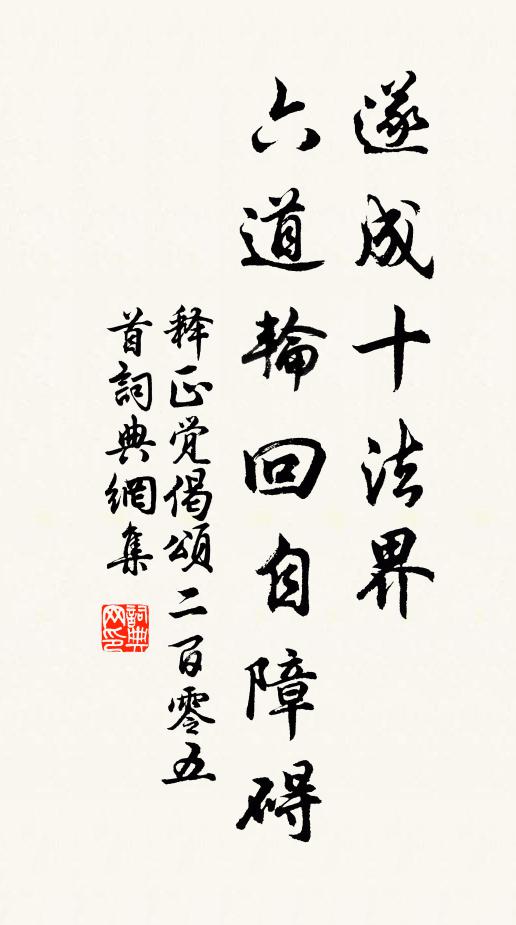 遂成十法界
六道輪回自障碍
释正觉偈頌二百零五
首詞典網集
詞典网印